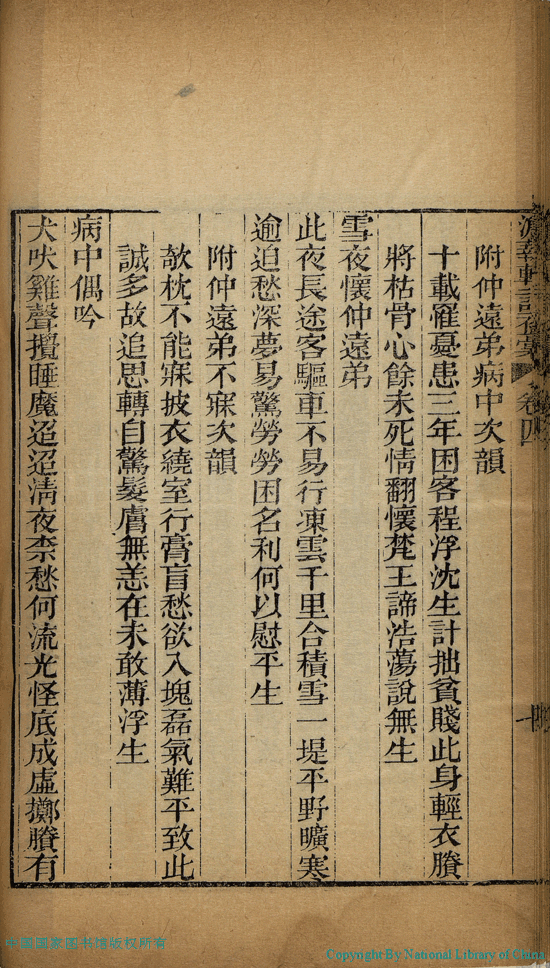 卷四
附仲遠弟病中次韻
十載罹憂患三年困客程浮沈生計拙貧賤此身輕衣賸
將枯骨心餘未死情翻懷梵王諦浩蕩說無生
雪夜懷仲遠弟
此夜長途客驅車不易行凍雲千里合積雪一堤平野曠寒
逾迫愁深夢易驚勞勞困名利何以慰平生
附仲遠弟不寐次韻
欹枕不能寐披衣繞室行膏肓愁欲入塊磊氣難平致此
誠多故追思轉自驚髮膚無恙在未敢薄浮生
病中偶吟
犬吠雞聲攪睡魔迢迢清夜柰愁何流光怪底成虛擲賸有
中国国家图书馆版权所有
Copyright By National Library of China